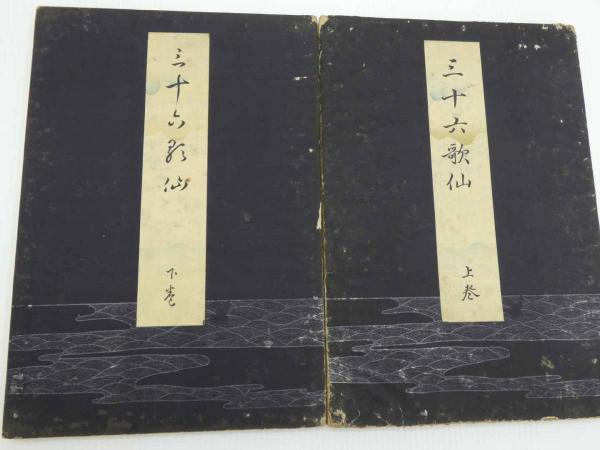 三十六歌仙
上巻
三十六歌仙
下巻